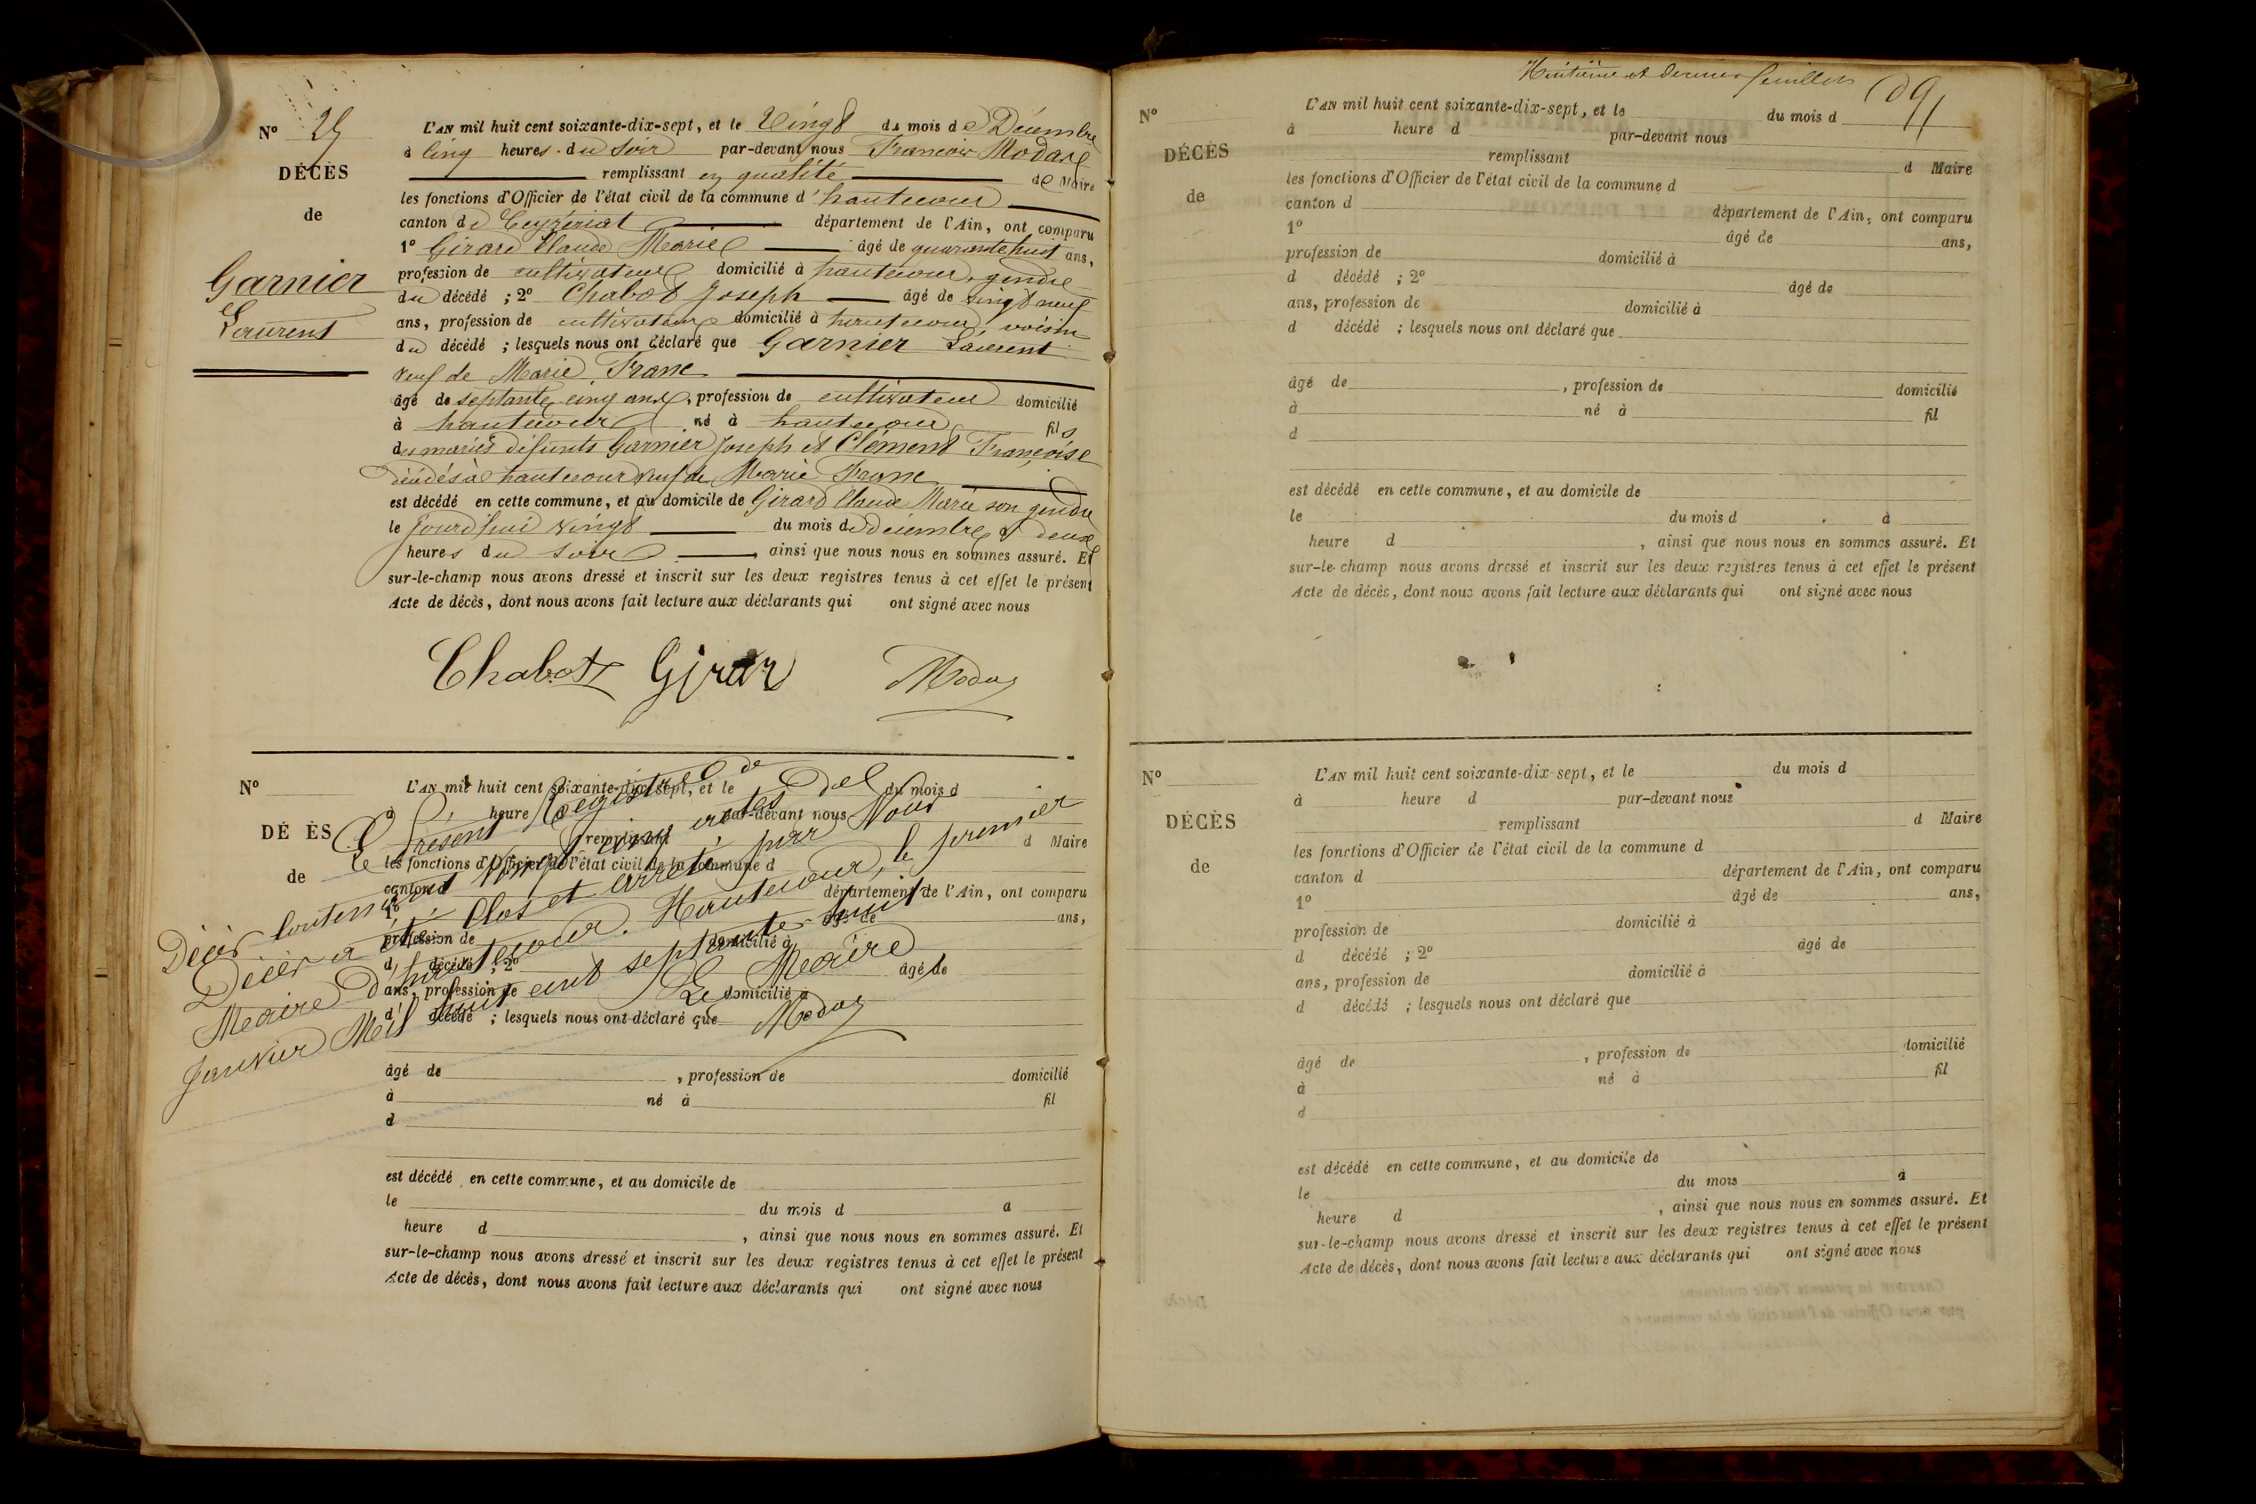 Nº 25
DÉCÈS
de
Garnier
Laurent
L'AN mil huit cent soixante-dix-sept, et le Vingt du mois de Décembre
à cinq heures du soir par-devant nous Francois Modas
remplissant en qualité de Maire
les fonctions d'Officier de l'état civil de la commune d'hautecour
canton de Ceyzériat département de l'Ain, ont comparu
1º Girard Claude Marie âgé de quarante huit ans,
profession de cultivateur domicilié à hautecour, gendre
du décédé ; 2º Chabot Joseph âgé de vingt neuf
ans, profession de cultivateur domicilié à hautecour, voisin
du décédé ; lesquels nous ont déclaré que Garnier Laurent
veuf de Marie Franc
âgé de septante cinq ans, profession de cultivateur domicilié
à hautecour né à hautecour fils
des mariés défunts Garnier Joseph et Clément Françoise
décédés à hautecour veuf de Marie Franc
est décédé en cette commune, et au domicile de Girard Claude Marie son gendre
le jourd'hui vingt du mois de décembre à deux
heures du soir , ainsi que nous nous en sommes assuré. Et
sur-le-champ nous avons dressé et inscrit sur les deux registres tenus à cet effet le présent
Acte de décès, dont nous avons fait lecture aux déclarants qui ont signé avec nous
Chabot Girar Modas
Nº
DÉ ÈS
de
L'AN mil huit cent soixante-dix-sept, et le du mois d
à heure par-devant nous
remplissant d Maire
les fonctions d'Officier de l'état civil de la commune d
canton d département de l'Ain, ont comparu
1º âgé de ans,
profession de domicilié à
d décédé ; 2º âgé de
ans, profession de domicilié à
d décédé ; lesquels nous ont déclaré que
Le Présent Registre de
Décès contenant vingt cinq actes de
Décès a été Clos et arrêté par Nous
Maire d'hautecour. Hautecour, le premier
Janvier Mil huit cent septante huit
Le Maire
Modas
âgé de , profession de domicilié
à né à fil
d
est décédé en cette commune, et au domicile de
le du mois d à
heure d , ainsi que nous nous en sommes assuré. Et
sur-le-champ nous avons dressé et inscrit sur les deux registres tenus à cet effet le présent
Acte de décès, dont nous avons fait lecture aux déclarants qui ont signé avec nous
Huitième et dernier feuillet
Nº
DÉCÈS
de
L'AN mil huit cent soixante-dix-sept, et le du mois d
à heure d par-devant nous
remplissant d Maire
les fonctions d'Officier de l'état civil de la commune d
canton d département de l'Ain, ont comparu
1º âgé de ans,
profession de domicilié à
d décédé ; 2º âgé de
ans, profession de domicilié à
d décédé ; lesquels nous ont déclaré que
âgé de , profession de domicilié
à né à fil
d
est décédé en cette commune, et au domicile de
le du mois d à
heure d , ainsi que nous nous en sommes assuré. Et
sur-le-champ nous avons dressé et inscrit sur les deux registres tenus à cet effet le présent
Acte de décès, dont nous avons fait lecture aux déclarants qui ont signé avec nous
Nº
DÉCÈS
de
L'AN mil huit cent soixante-dix-sept, et le du mois d
à heure d par-devant nous
remplissant d Maire
les fonctions d'Officier de l'état civil de la commune d
canton d département de l'Ain, ont comparu
1º âgé de ans,
profession de domicilié à
d décédé ; 2º âgé de
ans, profession de domicilié à
d décédé ; lesquels nous ont déclaré que
âgé de , profession de domicilié
à né à fil
d
est décédé en cette commune, et au domicile de
le du mois à
heure d , ainsi que nous nous en sommes assuré. Et
sur-le-champ nous avons dressé et inscrit sur les deux registres tenus à cet effet le présent
Acte de décès, dont nous avons fait lecture aux déclarants qui ont signé avec nous